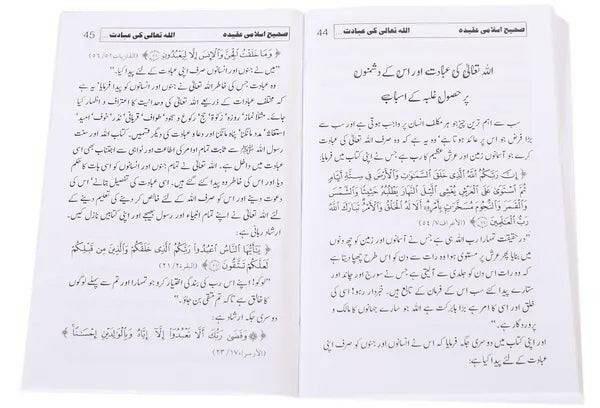 44 اللہ تعالیٰ کی عبادت ... صحیح اسلامی عقیدہ
اللہ تعالیٰ کی عبادت اور اس کے دشمنوں
پر حصولِ غلبہ کے اسباب
سب سے اہم ترین چیز جو ہر مکلف انسان پر واجب ہوتی ہے اور سب سے
بڑا فرض جو اس پر عائد ہوتا ہے' وہ یہ ہے کہ وہ صرف اللہ تعالیٰ کی عبادت
کرے جو آسمانوں زمین اور عرش عظیم کا رب ہے' جس نے اپنی کتاب میں فرمایا:
﴿إِنَّ رَبَّكُمُ اللَّهُ الَّذِي خَلَقَ السَّمَوَاتِ وَالْأَرْضَ فِي سِتَّةِ أَيَّامٍ
ثُمَّ اسْتَوَى عَلَى الْعَرْشِ يُغْشِي اللَّيْلَ النَّهَارَ يَطْلُبُهُ حَثِيثًا وَالشَّمْسَ
وَالْقَمَرَ وَالنُّجُومَ مُسَخَّرَاتٍ بِأَمْرِهِ أَلَا لَهُ الْخَلْقُ وَالْأَمْرُ تَبَارَكَ اللَّهُ
رَبُّ الْعَالَمِينَ﴾ (الأعراف ٧/ ٥٤)
"در حقیقت تمہارا رب اللہ ہی ہے جس نے آسمانوں اور زمین کو چھ دنوں
میں پیدا کیا پھر عرش پر مستوی ہوا وہ رات سے دن کو اس طرح چھپا دیتا ہے
کہ وہ رات اس دن کو جلدی سے آلیتی ہے جس نے سورج اور چاند اور
ستارے پیدا کئے سب اس کے فرمان کے تابع ہیں۔ خبردار رہو! اسی کی
خلق اور اسی کا امر ہے بڑا بابرکت ہے اللہ جو سارے جہانوں کا مالک و
پروردگار ہے۔"
اور اپنی کتاب میں دوسری جگہ فرمایا کہ اس نے انسانوں اور جنوں کو صرف اپنی
عبادت کے لئے پیدا کیا ہے:
45 اللہ تعالیٰ کی عبادت ... صحیح اسلامی عقیدہ
﴿وَمَا خَلَقْتُ الْجِنَّ وَالْإِنْسَ إِلَّا لِيَعْبُدُونِ﴾ (الذاريات ٥١/ ٥٦)
"میں نے جنوں اور انسانوں صرف اپنی عبادت کے لئے پیدا کیا۔"
وہ عبادت جس کی خاطر اللہ تعالیٰ نے جنوں اور انسانوں کو پیدا فرمایا یہ ہے
کہ مختلف عبادات کے ذریعے اللہ تعالیٰ کی وحدانیت کا اعتراف و اظہار کیا
جائے۔ مثلاً نماز' روزہ' زکوٰۃ' حج' رکوع و سجود' طواف' قربانی' نذر' خوف' امید'
استغاثہ' مدد مانگنا' پناہ مانگنا اور دعاء وعبادت کی دیگر قسمیں۔ کتاب اللہ اور سنت
رسول اللہ ﷺ سے ثابت تمام اوامر کی اطاعت اور نواہی سے اجتناب بھی اسی
عبادت میں داخل ہے۔ اللہ تعالیٰ نے تمام جنوں اور انسانوں کو اسی بات کا حکم
دیا اور اس کی خاطر وہ پیدا کئے گئے ہیں۔ اسی عبادت کی تفصیل بتانے' اس کی
دعوت دینے اور اس کو صرف اللہ تعالیٰ کے لئے خالص کر دینے کی تعلیم دینے کے
لئے اللہ تعالیٰ نے اپنے تمام انبیاء اور رسول بھیجے اور اپنی کتابیں نازل کیں۔
ارشاد ربانی ہے:
﴿يَاأَيُّهَا النَّاسُ اعْبُدُوا رَبَّكُمُ الَّذِي خَلَقَكُمْ وَالَّذِينَ مِنْ قَبْلِكُمْ
لَعَلَّكُمْ تَتَّقُونَ﴾ (البقرة ٢/ ٢١)
"اے لوگو! اپنے رب کی بندگی اختیار کرو جو تمہارا اور تم سے پہلے لوگوں
کا خالق ہے تاکہ تم متقی بن جاؤ۔"
دوسری جگہ ارشاد ہے:
﴿وَقَضَى رَبُّكَ أَلَّا تَعْبُدُوا إِلَّا إِيَّاهُ وَبِالْوَالِدَيْنِ إِحْسَانًا﴾
(الأسراء ١٧/ ٢٣)